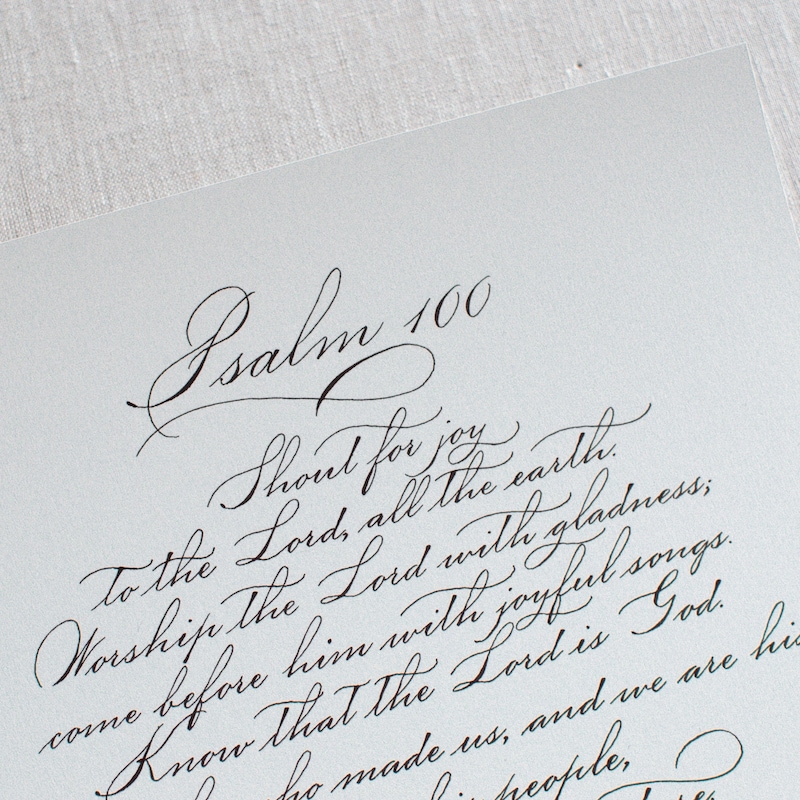 Psalm 100
Shout for joy
to the Lord, all the earth.
Worship the Lord with gladness;
come before him with joyful songs.
Know that the Lord is God.
who made us, and we are his
people,